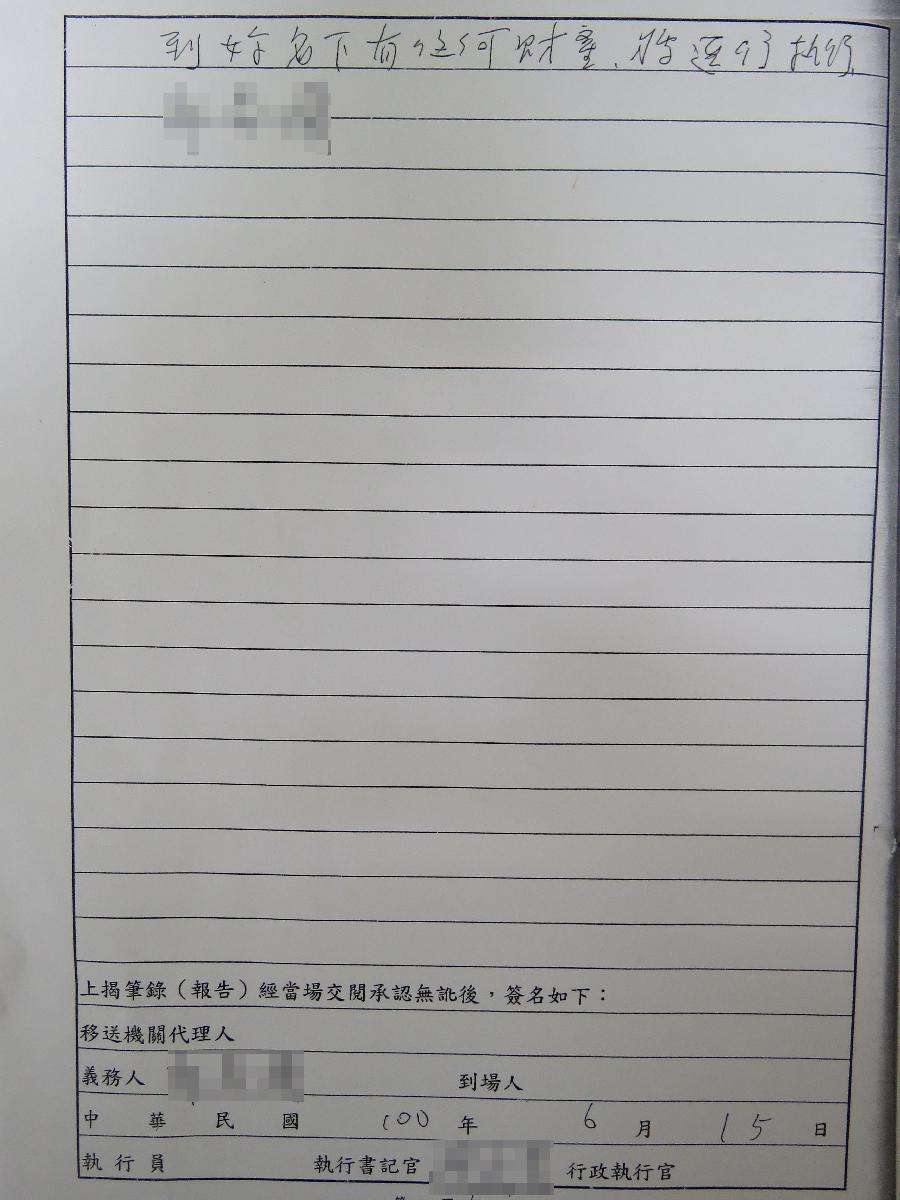 到妳名下有任何財產、將逕行執行
上揭筆錄（報告）經當場交閱承認無訛後，簽名如下：
移送機關代理人
義務人 到場人
中華民國 100 年 6 月 15 日
執行員 執行書記官 行政執行官